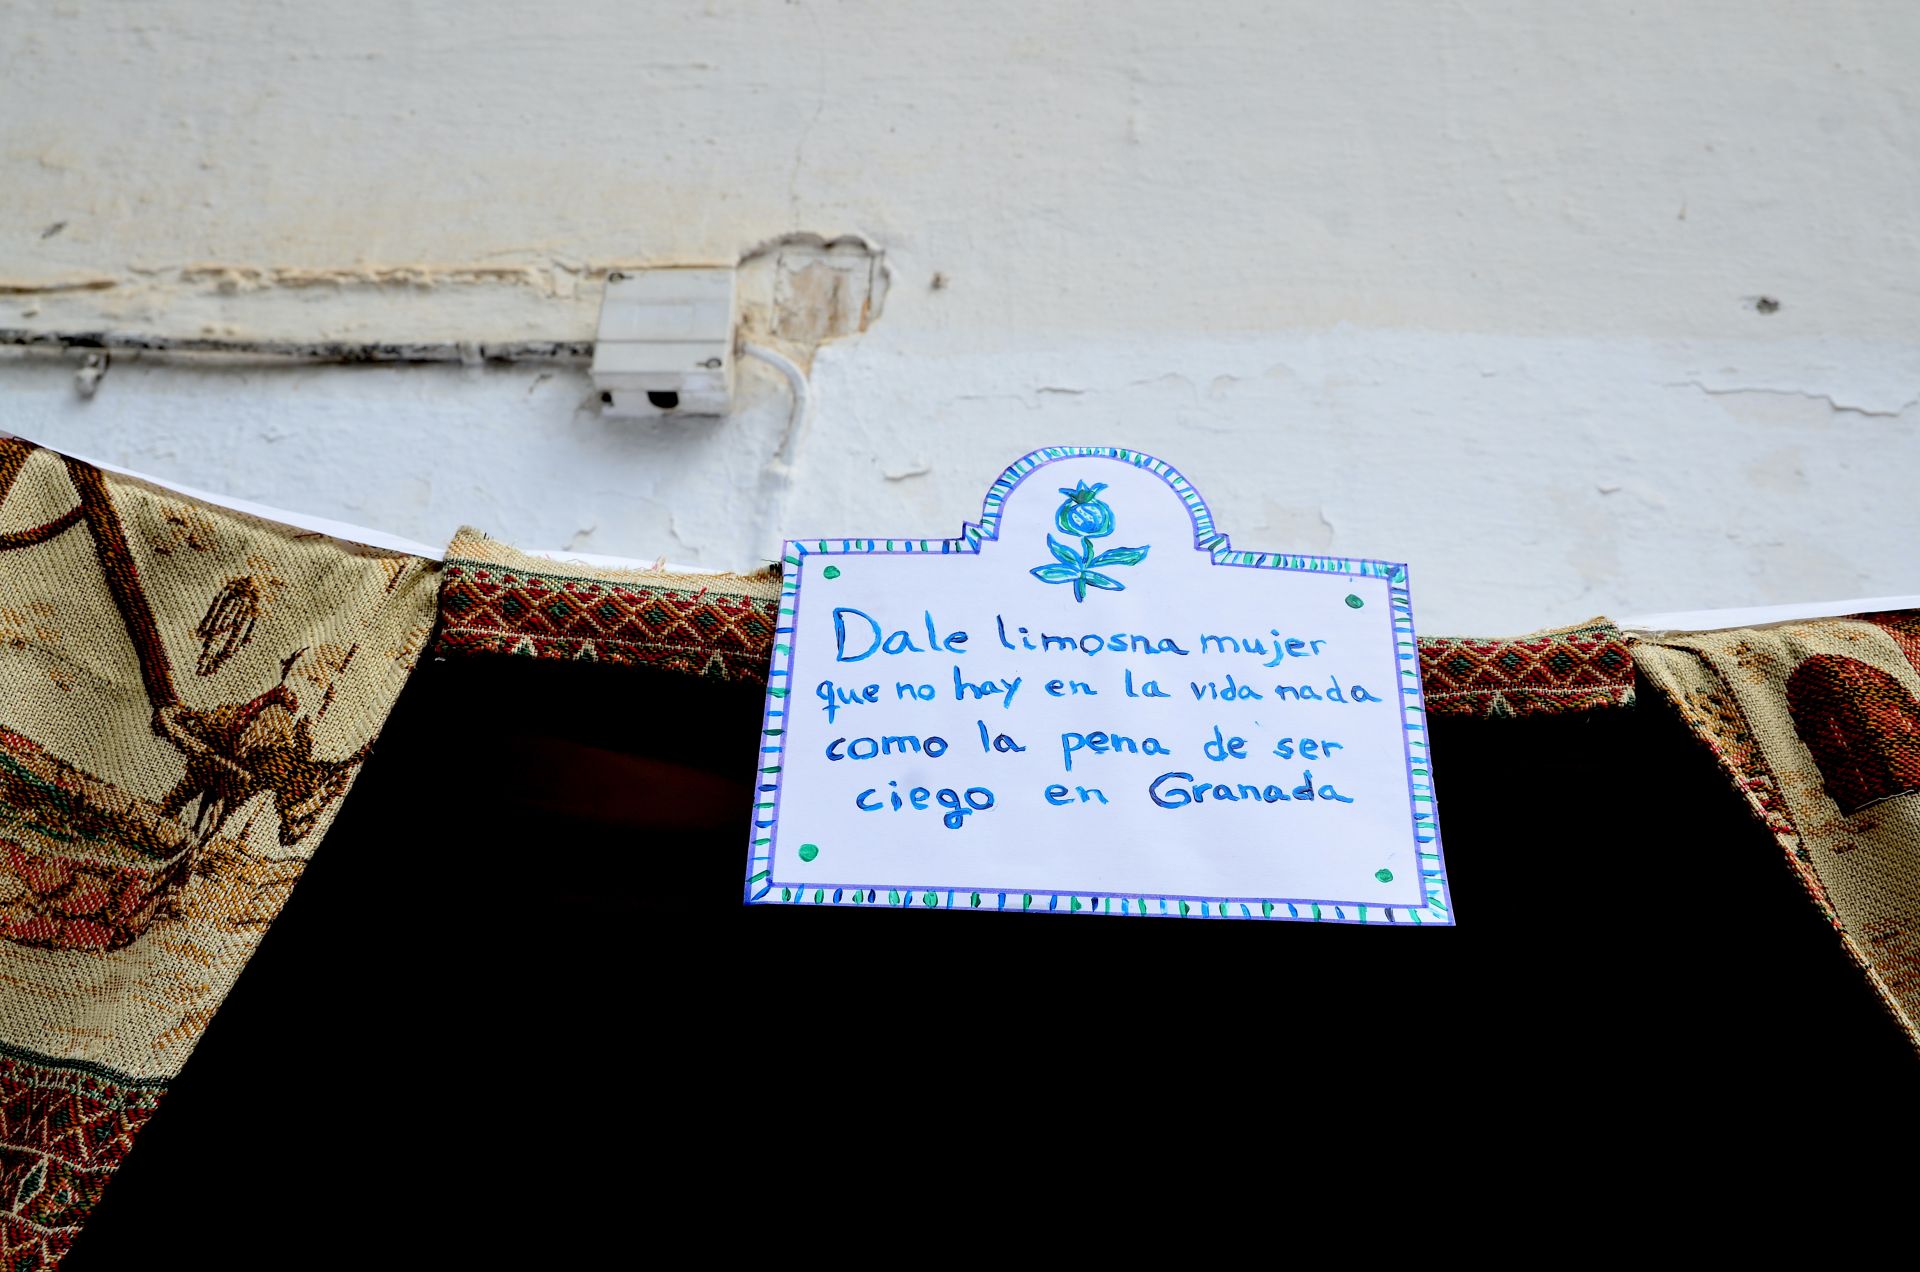 Dale limosna mujer
que no hay en la vida nada
como la pena de ser
ciego en Granada